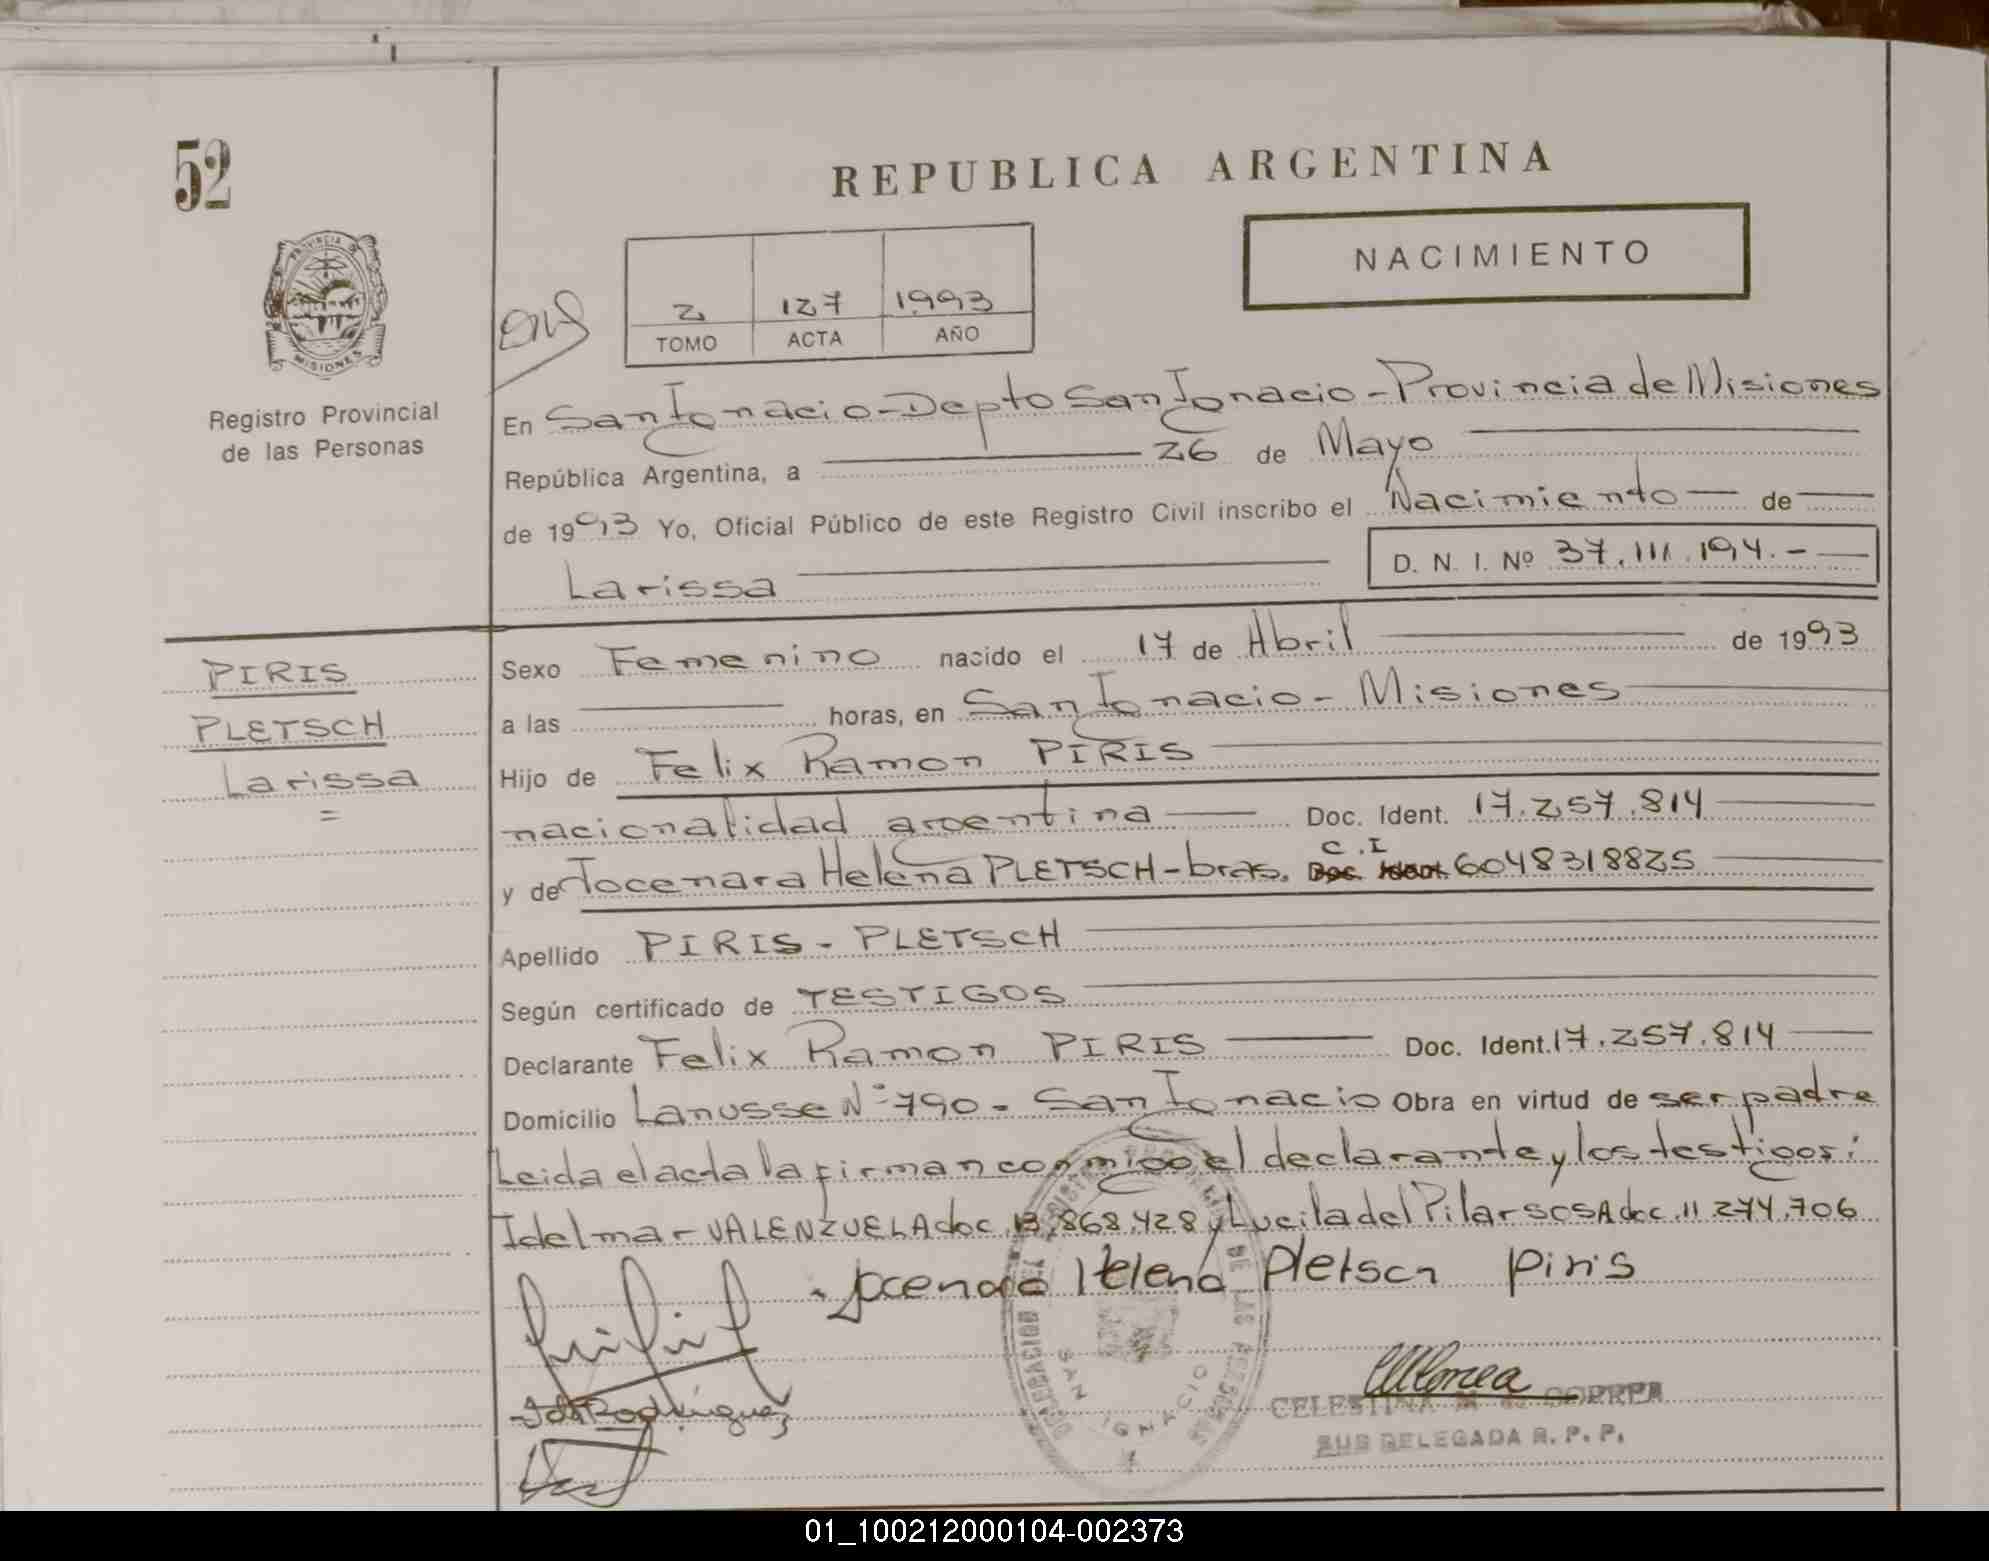 52
REPUBLICA ARGENTINA
NACIMIENTO
PROVINCIA DE
MISIONES
2 127 1993
TOMO ACTA AÑO
Registro Provincial
de las Personas
En San Ignacio - Depto San Ignacio - Provincia de Misiones
República Argentina, a 26 de Mayo
de 1993 Yo, Oficial Público de este Registro Civil inscribo el Nacimiento de
Larissa
D. N. I. Nº 37.111.194.-
PIRIS
PLETSCH
Larissa
=
Sexo Femenino nacido el 17 de Abril de 1993
a las horas, en San Ignacio - Misiones
Hijo de Felix Ramon PIRIS
nacionalidad argentina Doc. Ident. 17.257.814
C.I
y de Jocenara Helena PLETSCH - bras. Doc. Ident. 6048318825
Apellido PIRIS - PLETSCH
Según certificado de TESTIGOS
Declarante Felix Ramon PIRIS Doc. Ident. 17.257.814
Domicilio Lanusse Nº 790 - San Ignacio Obra en virtud de ser padre
Leida el acta la firman conmigo el declarante y los testigos:
Idelmar VALENZUELA doc. 13.868.428 y Lucila del Pilar SOSA doc. 11.274.706
Helena Pletsch Piris
DELEGACION DE LAS PERSONAS
SAN IGNACIO
Rodriguez
CELESTINA M. CORREA
SUB DELEGADA R. P. P.
01_100212000104-002373